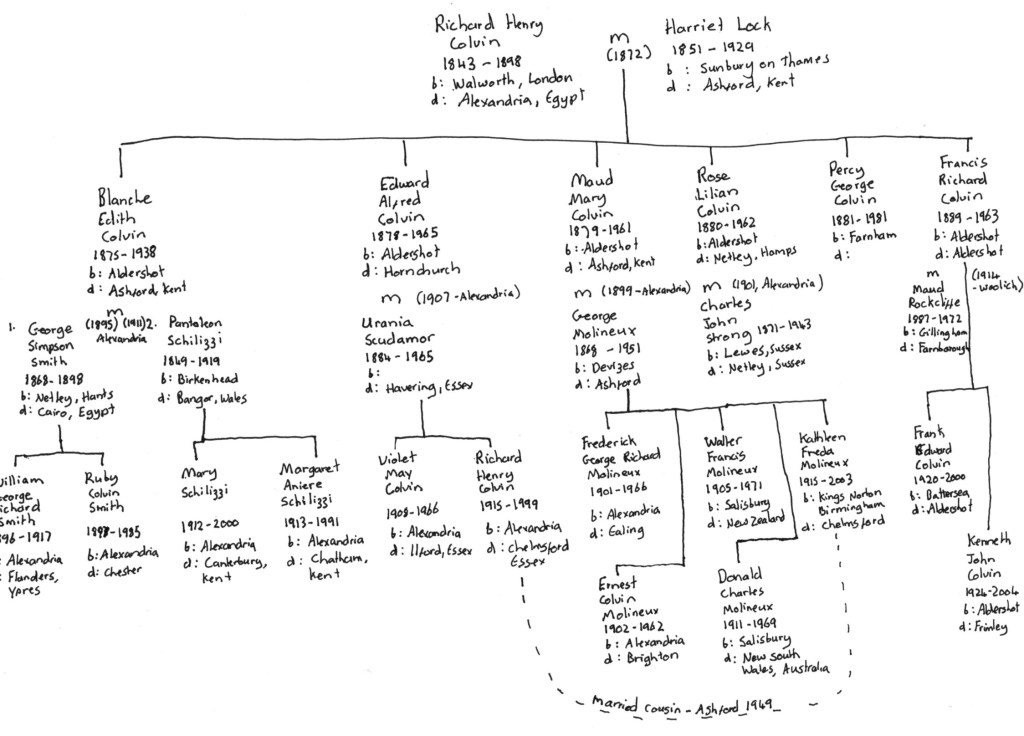 Richard Henry
Colvin
1843 - 1898
b: Walworth, London
d: Alexandria, Egypt
m
(1872)
Harriet Lock
1851 - 1929
b : Sunbury on Thames
d : Ashford, Kent
Blanche
Edith
Colvin
1875 - 1938
b: Aldershot
d: Ashford, Kent
Edward
Alfred
Colvin
1878 - 1965
b: Aldershot
d: Hornchurch
Maud
Mary
Colvin
1879 - 1961
b: Aldershot
d: Ashford, Kent
Rose
Lilian
Colvin
1880 - 1962
b: Aldershot
d: Netley, Hamps
Percy
George
Colvin
1881 - 1981
b: Farnham
d:
Francis
Richard
Colvin
1889 - 1963
b: Aldershot
d: Aldershot
m
(1895) (1911)
Alexandria
1. George
Simpson
Smith
1868 - 1898
b: Netley, Hants
d: Cairo, Egypt
2. Pantaleon
Schilizzi
1849 - 1919
b: Birkenhead
d: Bangor, Wales
m (1907 - Alexandria)
Urania
Scudamor
1884 - 1965
b:
d: Havering, Essex
m (1899 - Alexandria)
George
Molineux
1868 - 1951
b: Devizes
d: Ashford
m (1901, Alexandria)
Charles
John
Strong 1871 - 1943
b: Lewes, Sussex
d: Netley, Sussex
m (1914
- woolich)
Maud
Rockcliffe
1887 - 1972
b: Gillingham
d: Farnborough
William
George
Richard
Smith
1896 - 1917
: Alexandria
: Flanders,
Ypres
Ruby
Colvin
Smith
- 1985
b: Alexandria
d: Chester
Mary
Schilizzi
1912 - 2000
b: Alexandria
d: Canterbury,
Kent
Margaret
Aniere
Schilizzi
1913 - 1991
b: Alexandria
d: Chatham,
Kent
Violet
May
Colvin
1908 - 1966
b: Alexandria
d: Ilford, Essex
Richard
Henry
Colvin
1915 - 1999
b: Alexandria
d: Chelmsford
Essex
Frederick
George Richard
Molineux
1901 - 1966
b: Alexandria
d: Ealing
Walter
Francis
Molineux
1905 - 1971
b: Salisbury
d: New Zealand
Kathleen
Freda
Molineux
1915 - 2003
b: Kings Norton
Birmingham
d: Chelmsford
Frank
Edward
Colvin
1920 - 2000
b: Battersea
d: Aldershot
Ernest
Colvin
Molineux
1902 - 1962
b: Alexandria
d: Brighton
Donald
Charles
Molineux
1911 - 1969
b: Salisbury
d: New South
Wales, Australia
Kenneth
John
Colvin
1924 - 2004
b: Aldershot
d: Frimley
Married cousin - Ashford 1949